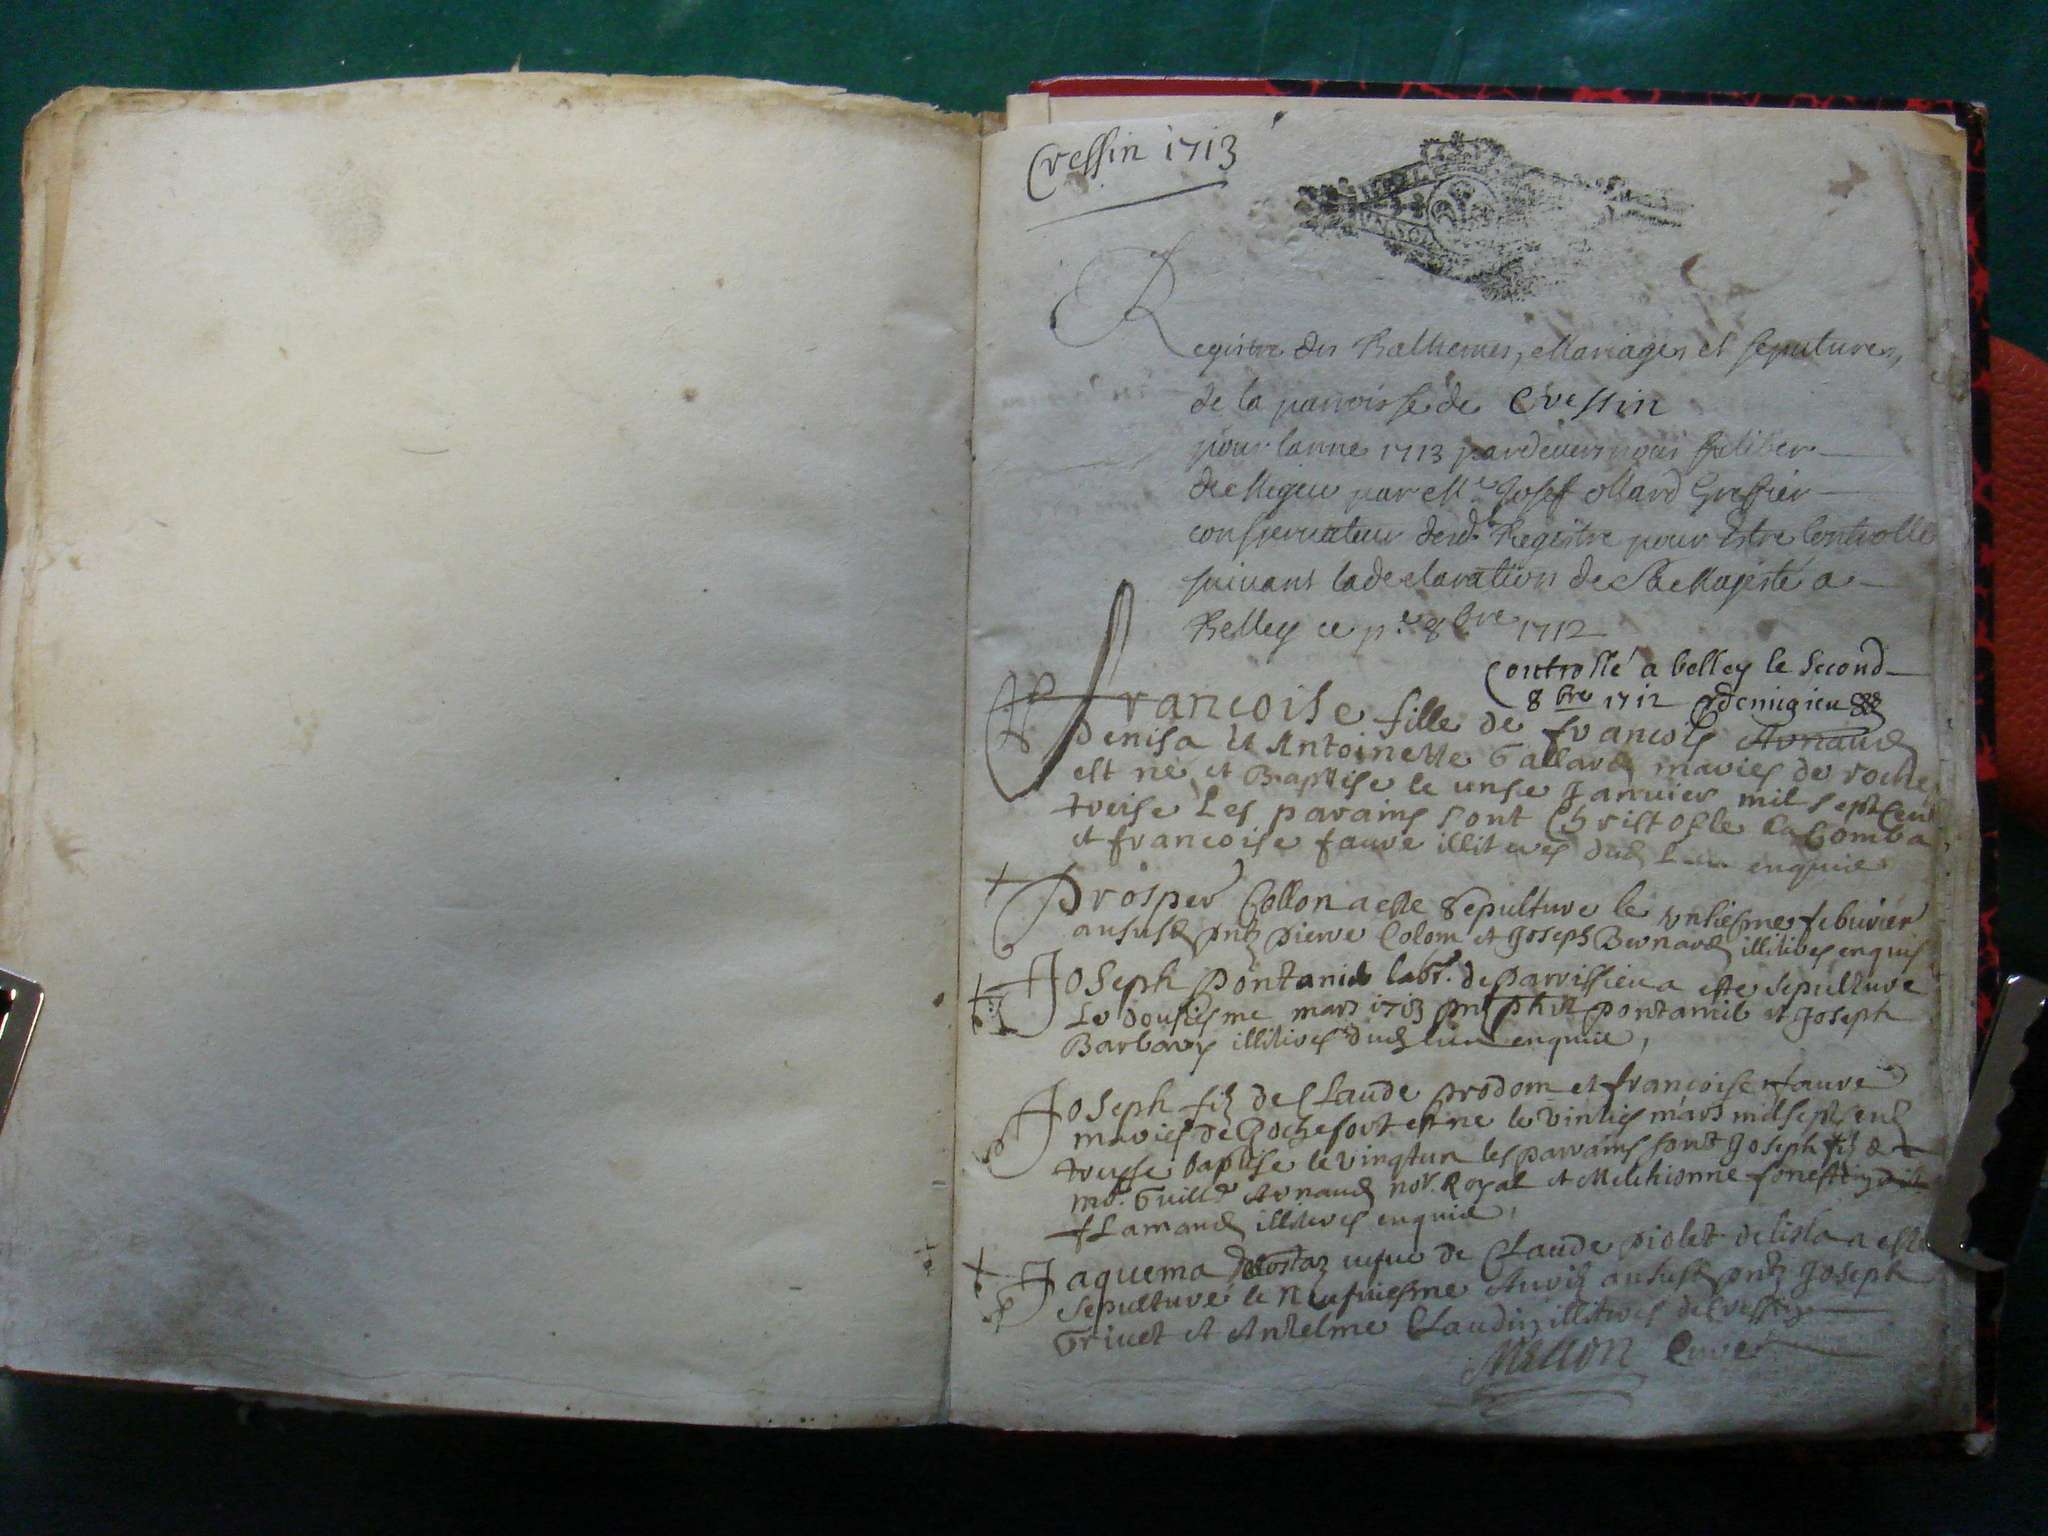 Cressin 1713
Registre des Bathemes, Mariages et sepultures,
de la parroisse de Cressin
pour lanne 1713 pardevers nous
par Me Josef Greffier
conservateur desd. Registre pour Estre Controlle
suivant la declaration de Sa Majesté a
Belley ce pe 8bre 1712
Controllé a belley le second
8bre 1712 demigieu
francoise fille de francois Arnaud
Denisa et Antoinette Gallard maries de roche
est né et Baptise le unse Janvier mil sept cent
treise Les parains sont Christofle La Comba
et francoise faure illiteres dud. Lieu enquis
Prosper Collon a este sepulture le febvrier
ausust pntz pierre Colom et Joseph Bernard illitires enquis
Joseph Pontanid labr. de parrissieu a este sepulture
Le dousiesme mars 1713 pntz et Joseph
Barbary illitires dud. lieu enquis,
Joseph filz de Claude prodom et francoise faure
maries de Rochefort est ne le vinties mars mil sept cent
treise baptise le vingt un les parrains sont Joseph filz de
Mr. Guille Arnaud nor. Royal et Melchionne
flamand illiteres enquis,
Jaquema vefve de Claude piolet de lisla a este
sepulture le neufviesme Avril ausust pntz Joseph
Grivet et Antelme Claudin illiteres de Cressin
Mellon Curé